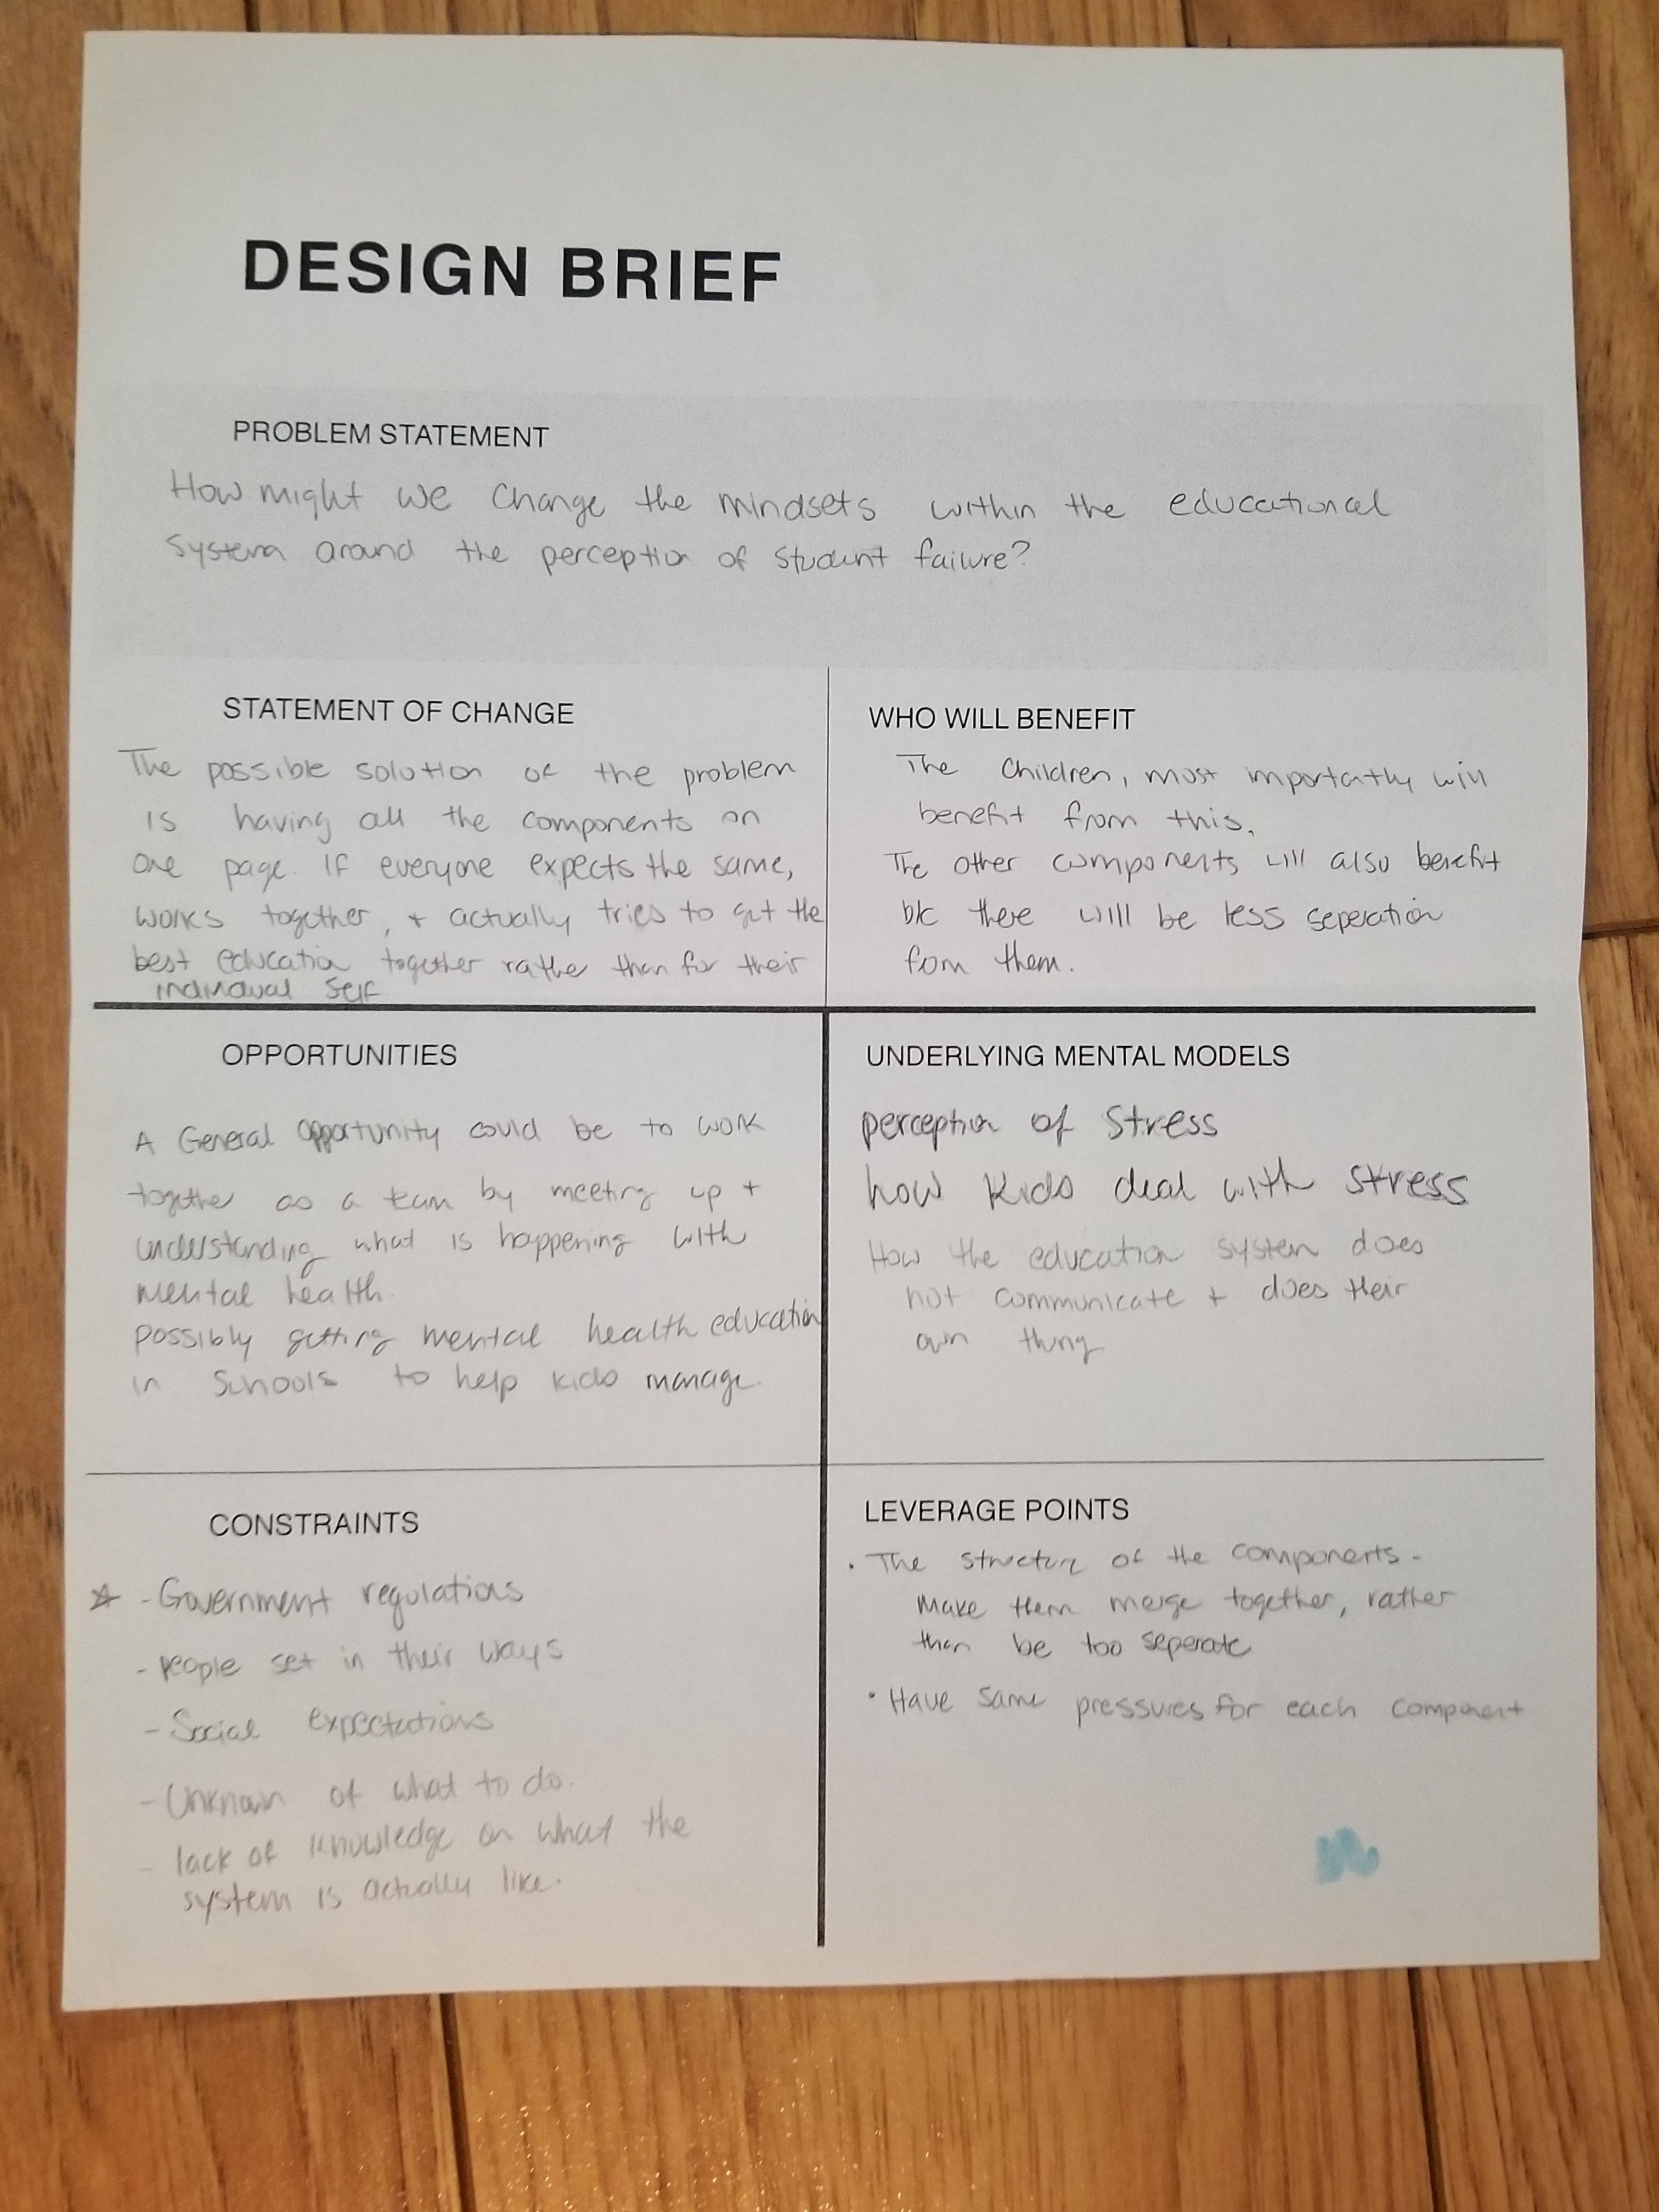 DESIGN BRIEF
PROBLEM STATEMENT
How might we change the mindsets within the educational
system around the perception of student failure?
STATEMENT OF CHANGE
The possible solution of the problem
is having all the components on
one page. If everyone expects the same,
works together, + actually tries to get the
best education together rather than for their
individual self
WHO WILL BENEFIT
The children, most importantly will
benefit from this.
The other components will also benefit
b/c there will be less seperation
from them.
OPPORTUNITIES
A General opportunity could be to work
together as a team by meeting up +
understanding what is happening with
mental health.
possibly getting mental health education
in schools to help kids manage.
UNDERLYING MENTAL MODELS
perception of stress
how kids deal with stress
How the education system does
not communicate + does their
own thing
CONSTRAINTS
☆ - Government regulations
- People set in their ways
- Social expectations
- Unknown of what to do.
- lack of knowledge on what the
system is actually like.
LEVERAGE POINTS
• The structure of the components -
Make them merge together, rather
than be too seperate
• Have same pressures for each component